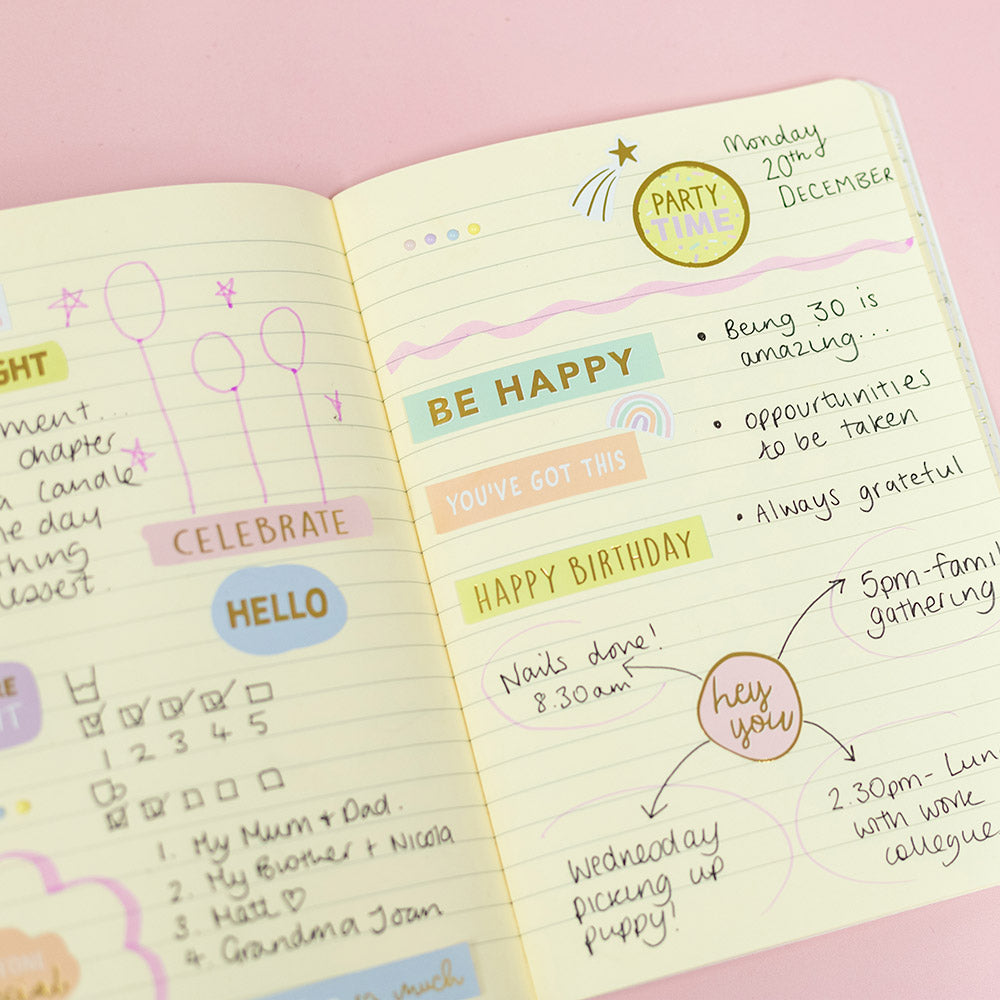 GHT
ment....
chapter
a candle
e day
thing
dessert.
CELEBRATE
HELLO
RE
IT
1 2 3 4 5
1. My Mum + Dad.
2. My Brother + Nicola
3. Matt ♡
4. Grandma Joan
much
Monday
20th
DECEMBER
PARTY
TIME
BE HAPPY
• Being 30 is
amazing...
YOU'VE GOT THIS
• oppourtunities
to be taken
HAPPY BIRTHDAY
• Always grateful
5pm - famil
gathering
Nails done!
8.30am
hey
you
2.30pm - Lun
with work
collegue
Wednesday
picking up
puppy!